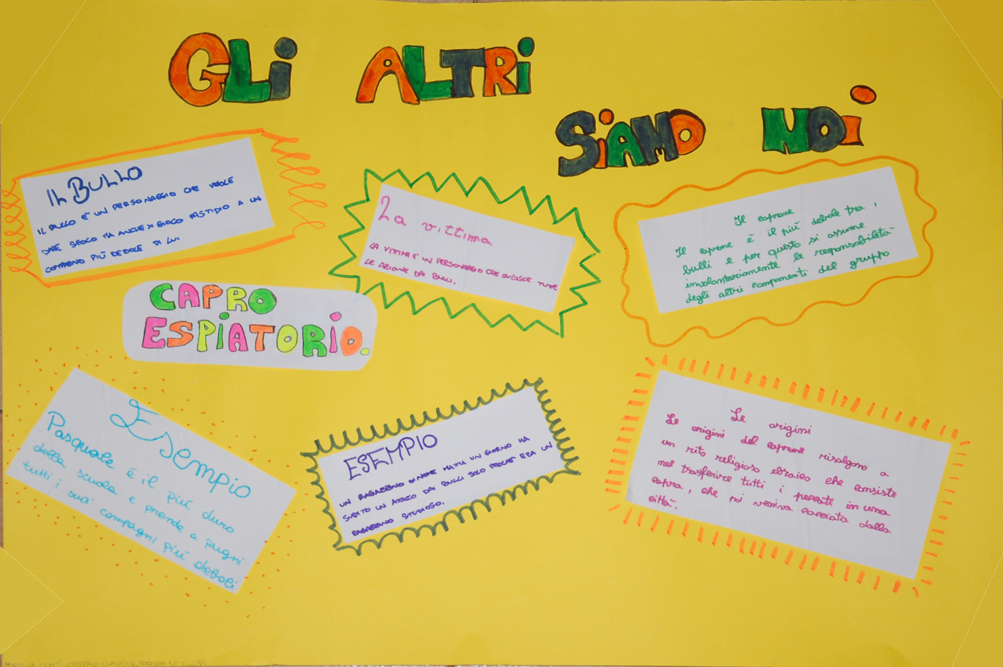 GLi ALTRi
SiAMO NOi
IL BULLO
IL BULLO E' UN PERSONAGGIO CHE VUOLE
DARE SFOGO MA ANCHE X GIOCO FASTIDIO A UN
COMPAGNO PIÙ DEBOLE DI LUI
La vittima
LA VITTIMA E' UN PERSONAGGIO CHE SUBISCE TUTTE
LE AZIONI DA BULLI.
Il caprone
Il caprone è il più debole tra i
bulli e per questo si assume
involontariamente le responsabilità
degli altri componenti del gruppo
CAPRO
ESPiATORIO.
Esempio
Pasquale è il più duro
della scuola e prende a pugni
tutti i suoi compagni più deboli
ESEMPIO
UN RAGAZZINO DI NOME MATTIA UN GIORNO HA
SUBITO UN ATTACCO DA BULLI SOLO PERCHÉ ERA UN
RAGAZZINO STUDIOSO.
Le origini
Le origini del caprone risalgono a
un rito religioso ebraico che consiste
nel trasferire tutti i peccati in una
capra, che poi veniva cacciata dalla
città.